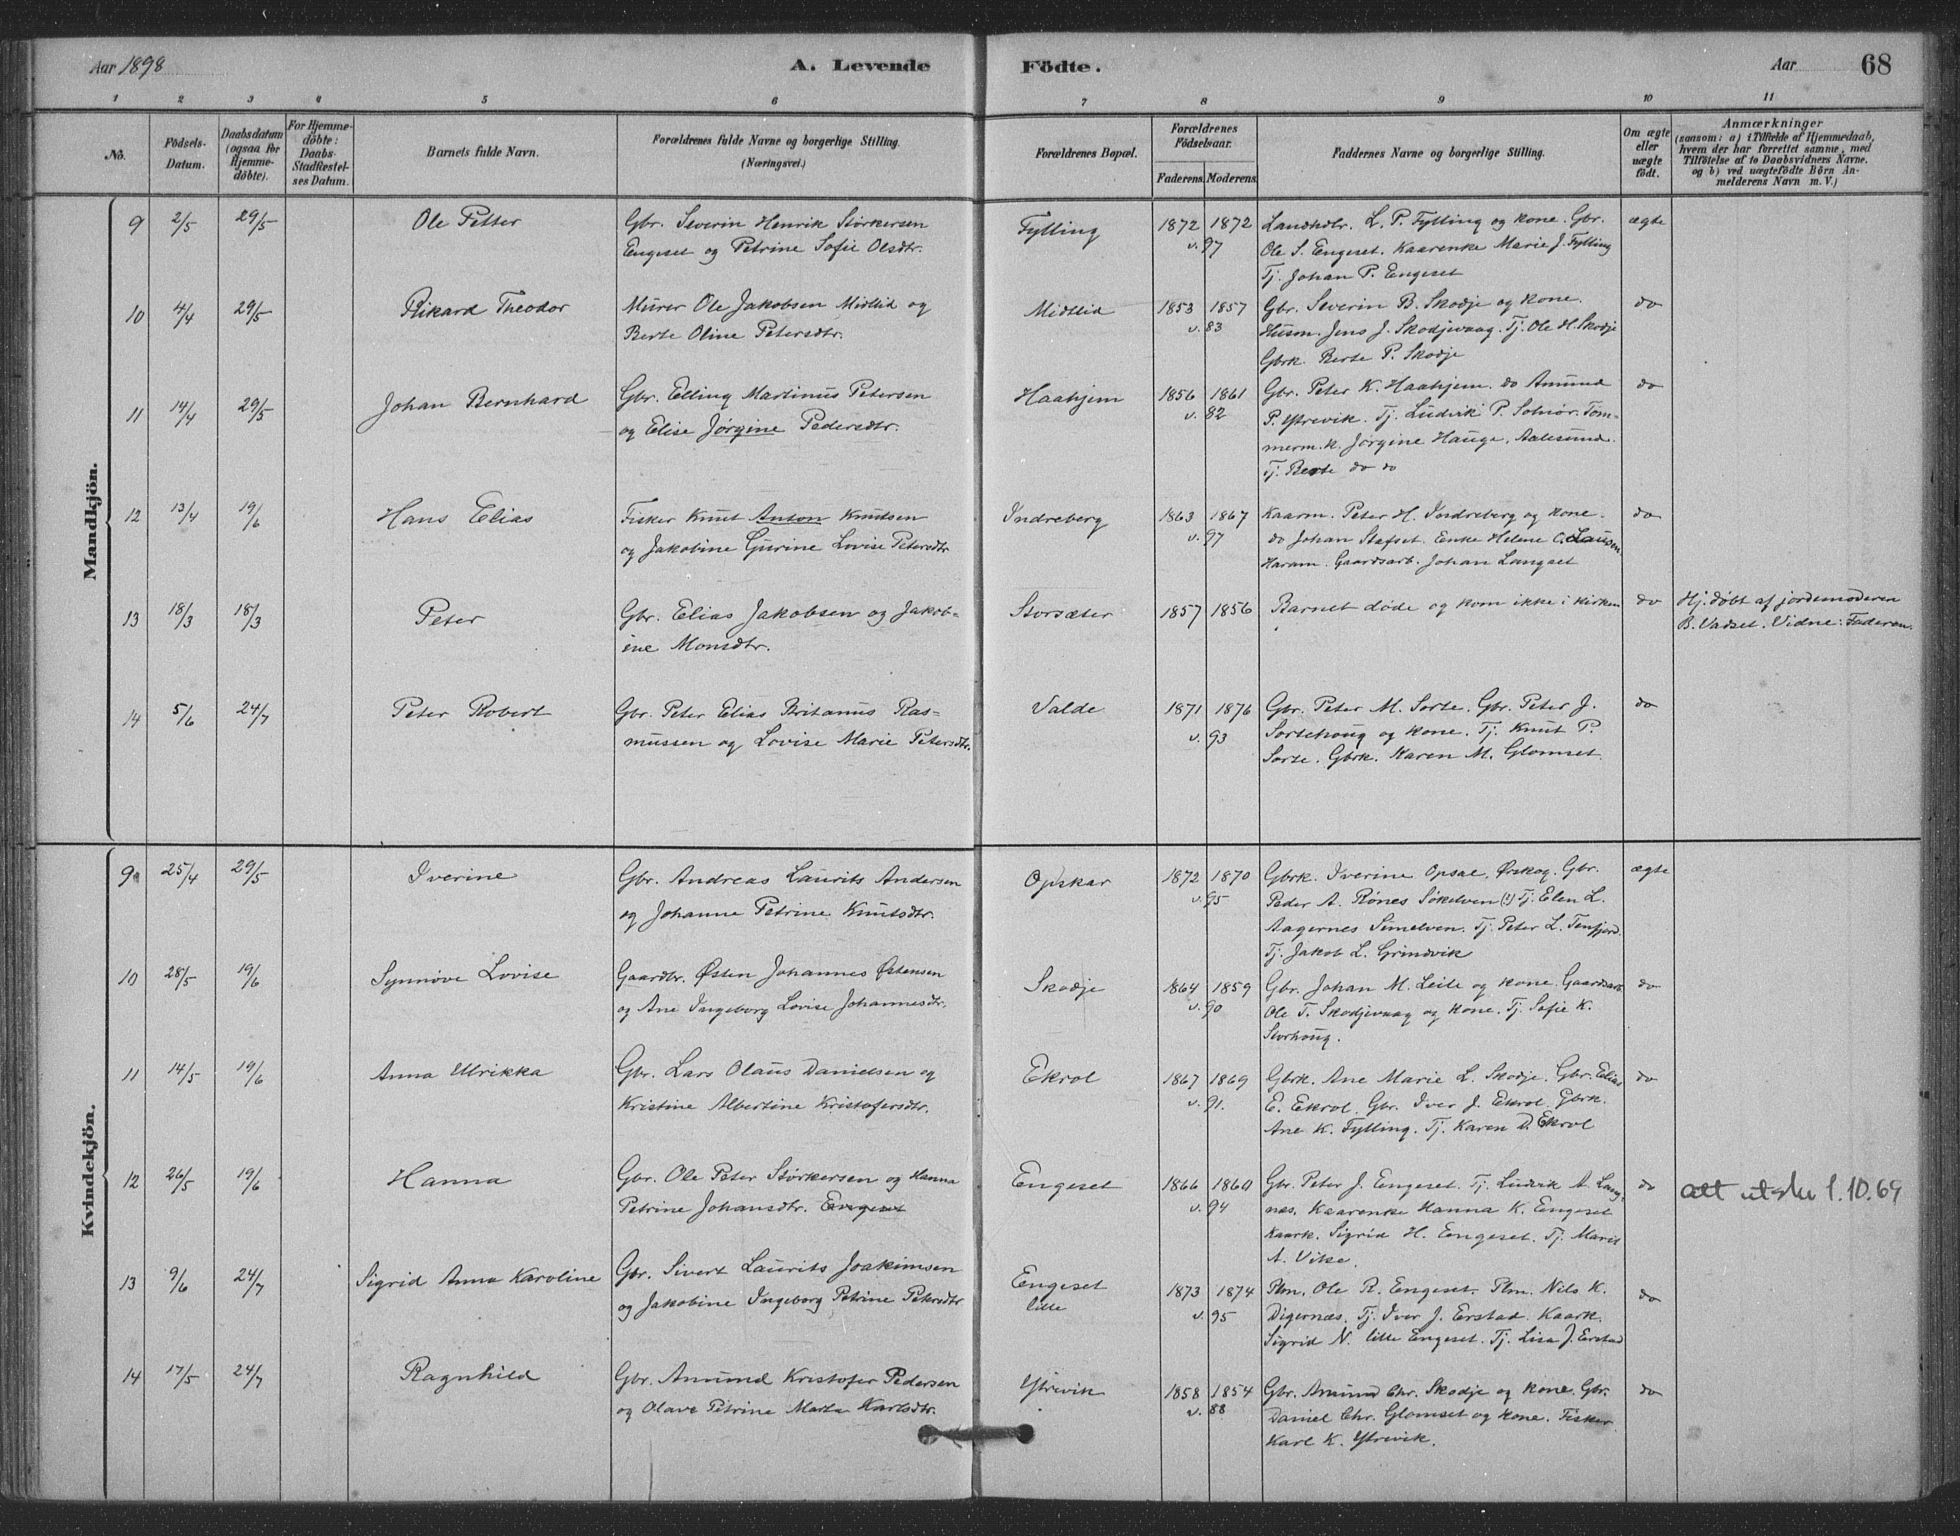 Aar 1898 A. Levende Födte. Aar 68
1 2 3 4 5 6 7 8 9 10 11
No.
Födsels-
Datum.
Daabsdatum
(ogsaa for
Hjemme-
döbte).
For Hjemme-
döbte:
Daabs-
Stadfæstel-
ses Datum.
Barnets fulde Navn.
Forældrenes fulde Navne og borgerlige Stilling.
(Næringsvei.)
Forældrenes Bopæl.
Forældrenes
Födselsaar.
Faderens. Moderens.
Faddernes Navne og borgerlige Stilling.
Om ægte
eller
uægte
födt.
Anmærkninger
(saasom: a) i Tilfælde af Hjemmedaab,
hvem der har forrettet samme, med
Tilföielse af to Daabsvidners Navne.
og b) ved uægtefödte Börn An-
melderens Navn m. V.)
Mandkjön.
9 2/5 29/5 Ole Petter
Gbr. Severin Henrik Størkersen
Engeset og Petrine Sofie Olsdtr.
Fylling
1872 1872
v. 97
Landhdtr. L. P. Fylling og kone. Gbr.
Ole S. Engeset. Kaarenke Marie J. Fylling
Tj. Johan P. Engeset
ægte
10 4/4 29/5 Rikard Theodor
Murer Ole Jakobsen Midtlid og
Berte Oline Petersdtr.
Midtlid
1853 1857
v. 83
Gbr. Severin B. Skodje og kone.
Husm. Jens J. Skodjevaag. Tj. Ole H. Skodje
Gbrk. Berte P. Skodje
do
11 14/4 29/5 Johan Bernhard
Gbr. Elling Martinus Petersen
og Elise Jørgine Pedersdtr.
Haahjem
1856 1861
v. 82
Gbr. Peter K. Haahjem. do Amund
P. Ytrevik. Tj. Ludvik P. Solnør. Töm-
merm.k. Jørgine Hauge, Aalesund.
Tj. Berte do do
do
12 13/4 19/6 Hans Elias
Fisker Knut Anton Knutsen
og Jakobine Gurine Lovise Petersdtr
Indreberg
1863 1867
v. 97
Kaarm. Peter H. Indreberg og kone.
do Johan Stafset. Enke Helene C. Lausen
Haram. Gaardsarb. Johan Langset
do
13 18/3 18/3 Peter
Gbr. Elias Jakobsen og Jakob-
ine Monsdtr.
Storsæter
1857 1856
Barnet døde og kom ikke i kirken
do
Hj. døbt af jordemoderen
B. Vadset. Vidne: Faderen.
14 5/6 24/7 Peter Robert
Gbr. Peter Elias Britanus Ras-
mussen og Lovise Marie Petersdtr.
Valde
1871 1876
v. 93
Gbr. Peter M. Sorte. Gbr. Peter J.
Sortehoug og kone. Tj. Knut P.
Sorte. Gbrk. Karen M. Glomset
do
Kvindekjön.
9 25/4 29/5 Iverine
Gbr. Andreas Laurits Andersen
og Johanne Petrine Knutsdtr.
Opskar
1872 1870
v. 95
Gbrk. Iverine Opsal, Ørskog. Gbr.
Peder A. Rönes Søkelven (!) Tj. Elen L.
Aagernes Simelven. Tj. Peter L. Tenfjord.
Tj. Jakob L. Grindvik
ægte
10 28/5 19/6 Synnöve Lovise
Gaardbr. Østen Johannes Østensen
og Ane Ingeborg Lovise Johannesdtr.
Skodje
1864 1859
v. 90
Gbr. Johan M. Leite og kone. Gaardsarb.
Ole T. Skodjevaag og kone. Tj. Sofie K.
Storhoug.
do
11 14/5 19/6 Anna Ulrikka
Gbr. Lars Olaus Danielsen og
Kristine Albertine Kristofersdtr.
Ekrol
1867 1869
v. 91.
Gbrk. Ane Marie L. Skodje. Gbr. Elias
E. Ekrol. Gbr. Iver J. Ekrol. Gbrk.
Ane K. Fylling. Tj. Karen D. Ekrol
do
12 26/5 19/6 Hanna
Gbr. Ole Peter Størkersen og Hanna
Petrine Johansdtr. Engeset
Engeset
1866 1860
v. 94
Gbr. Peter J. Engeset. Tj. Ludvik A. Lang-
næs. Kaarenke Hanna K. Engeset
Kaark. Sigrid H. Engeset. Tj. Marit
A. Vike.
do
att utskr 1.10.69
13 9/6 24/7 Sigrid Anna Karoline
Gbr. Sivert Laurits Joakimsen
og Jakobine Ingeborg Petrine Petersdtr
Engeset
lille
1873 1874
v. 95
Plm. Ole R. Engeset. Plm. Nils K.
Digernæs. Tj. Iver J. Erstad. Kaark.
Sigrid N. lille Engeset. Tj. Lisa J. Erstad
do
14 17/5 24/7 Ragnhild
Gbr. Amund Kristofer Pedersen
og Olave Petrine Marta Karlsdtr.
Ytrevik
1858 1854
v. 88
Gbr. Amund Chr. Skodje og kone. Gbr.
Daniel Chr. Glomset og kone. Fisker
Karl K. Ytrevik.
do